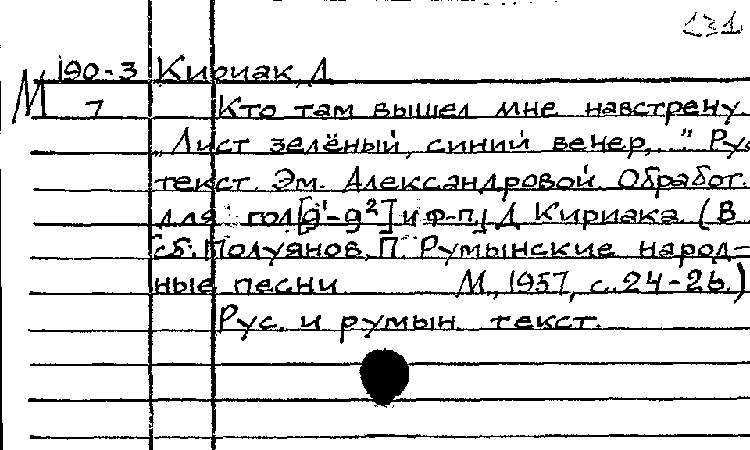 131
190-3 Кириак, Д
М 7 Кто там вышел мне навстречу.
„Лист зелёный, синий вечер,..." Рус
текст. Эм. Александровой. Обработ.
для гол[g¹-g²] и ф-п. Д Кириака (В
сб. Полуянов, П. Румынские народ-
ные песни М., 1957, с. 24-26.)
Рус. и румын. текст.